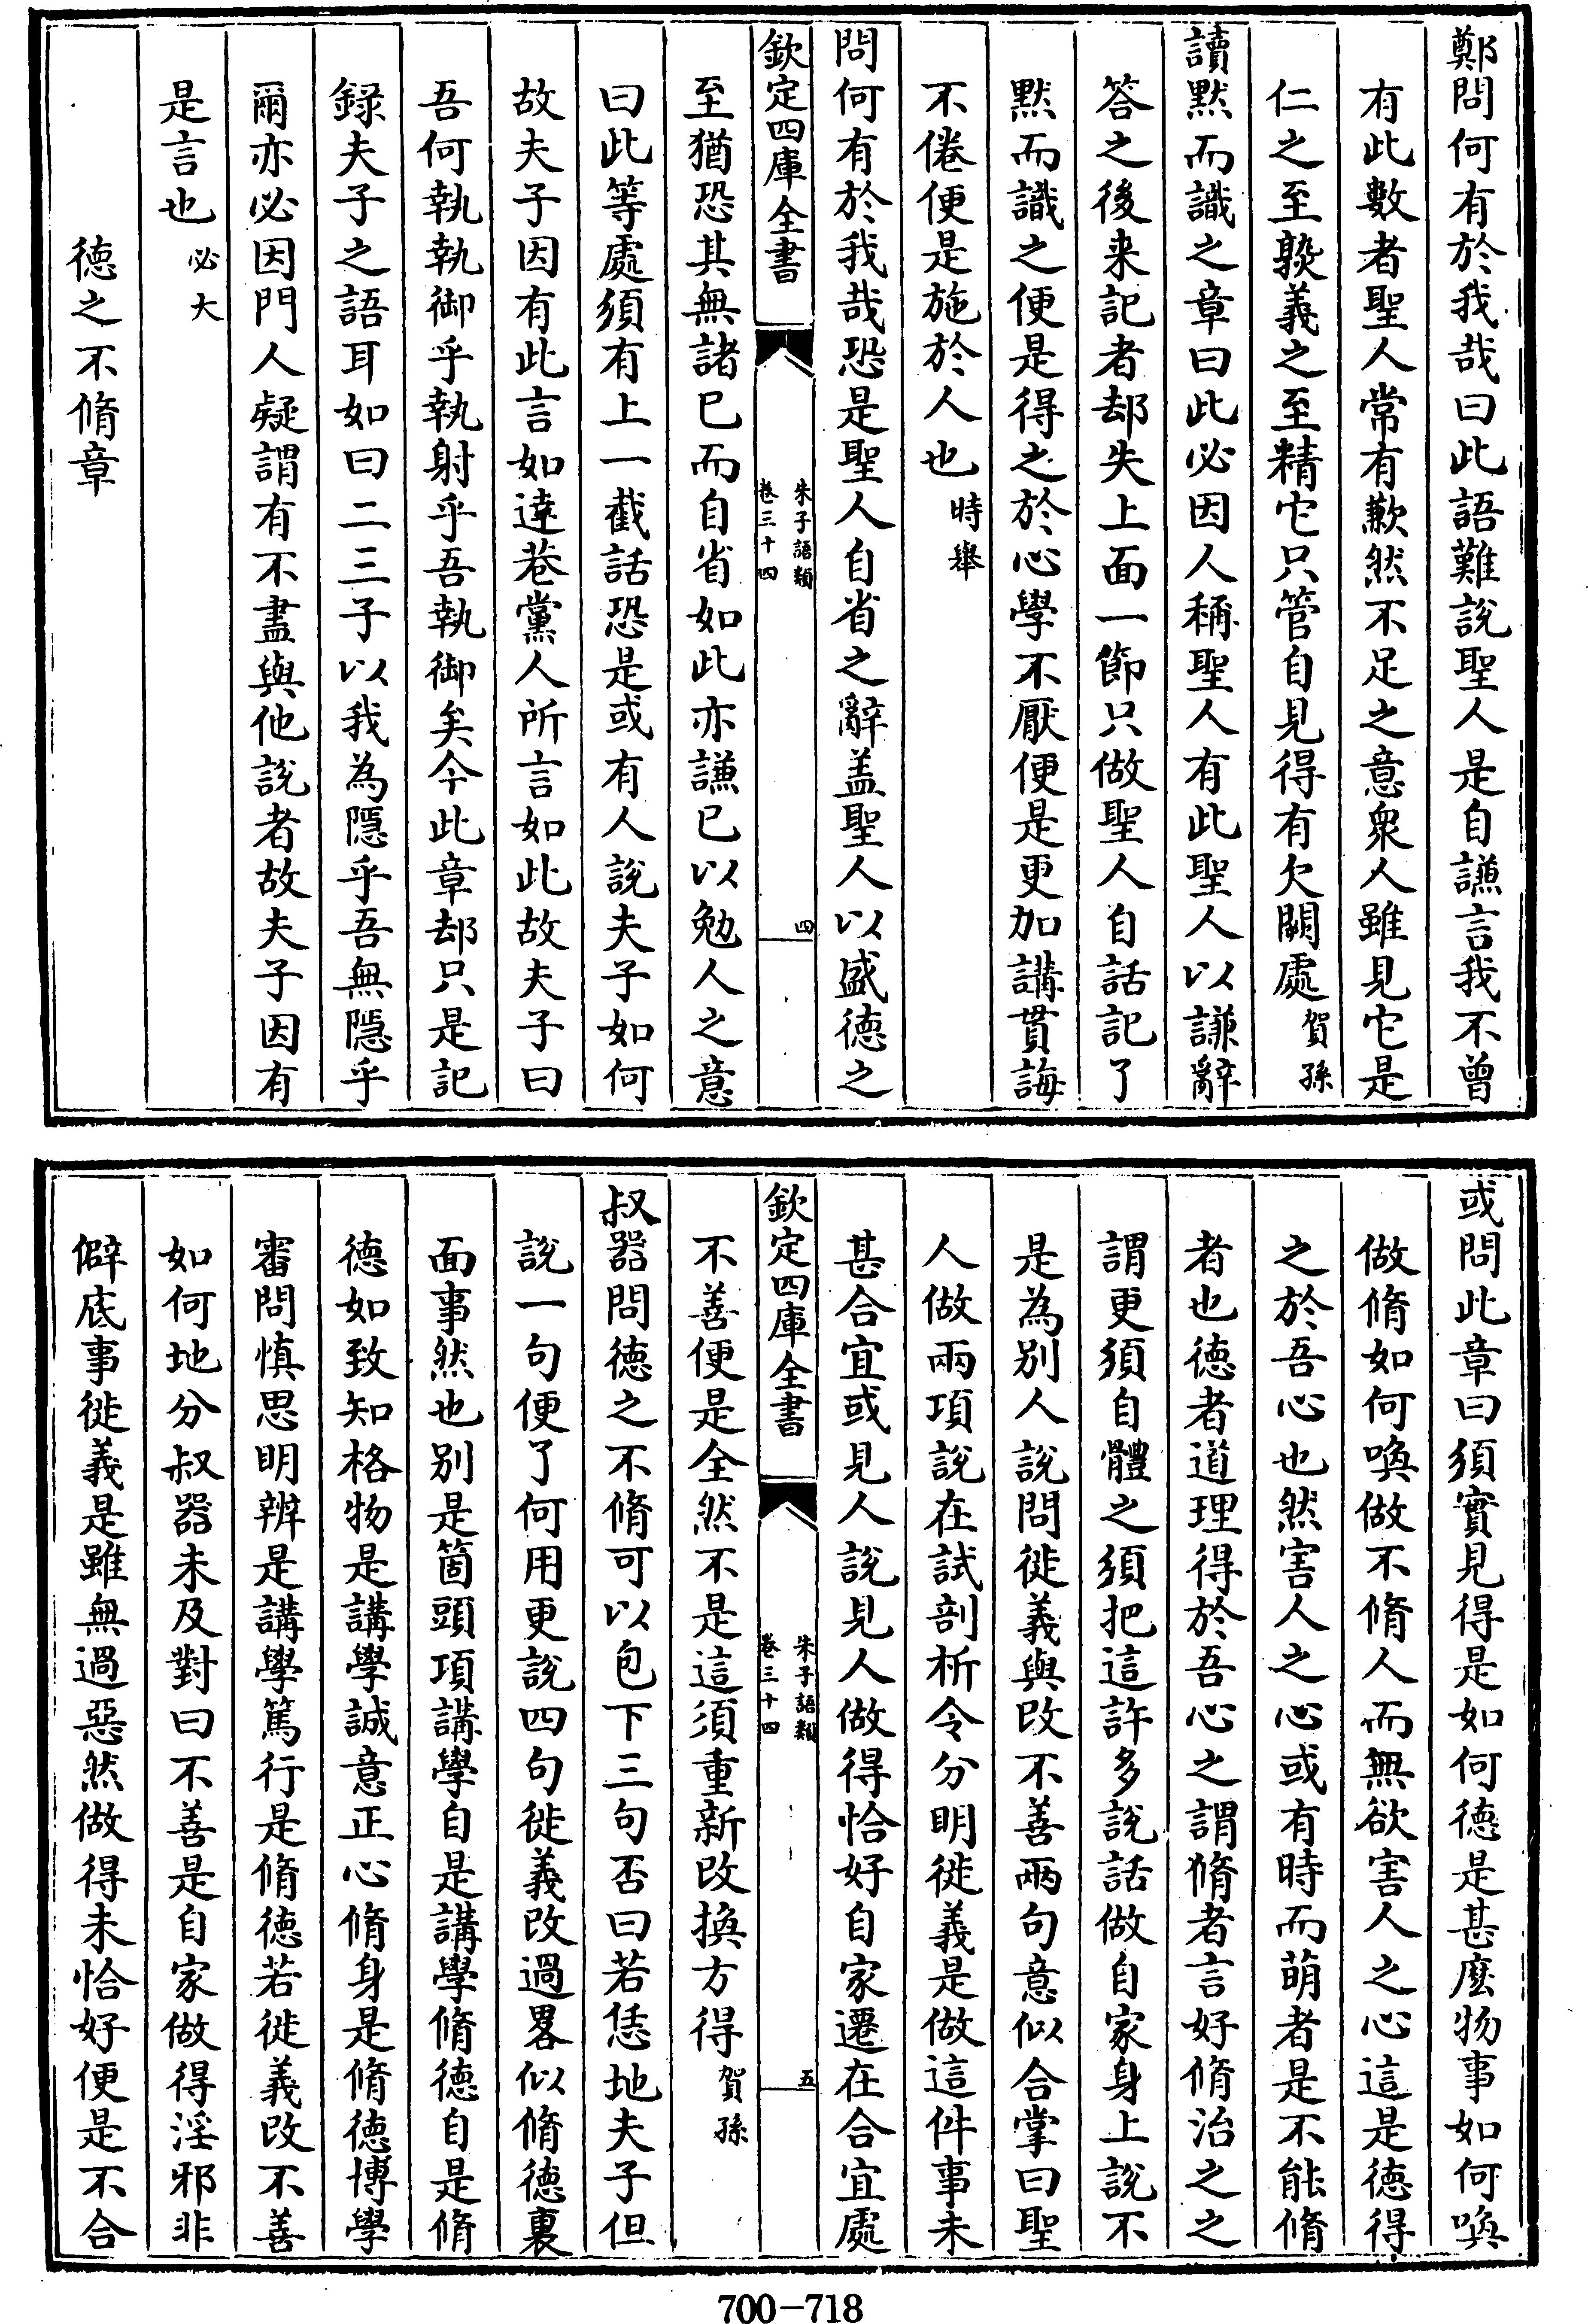 鄭問何有於我哉曰此語難說聖人是自謙言我不曾
有此數者聖人常有歉然不足之意衆人雖見它是
仁之至𤍠義之至精它只管自見得有欠闕處賀孫
讀黙而識之章曰此必因人稱聖人有此聖人以謙辭
答之後來記者却失上面一節只做聖人自話記了
黙而識之便是得之於心學不厭便是更加講貫誨
不倦便是施於人也時舉
問何有於我哉恐是聖人自省之辭盖聖人以盛徳之
欽定四庫全書
朱子語類
卷三十四
四
至猶恐其無諸已而自省如此亦謙已以勉人之意
曰此等處須有上一截話恐是或有人說夫子如何
故夫子因有此言如達巷黨人所言如此故夫子曰
吾何執執御乎執射乎吾執御矣今此章却只是記
録夫子之語耳如曰二三子以我為隠乎吾無隠乎
爾亦必因門人疑謂有不盡與他說者故夫子因有
是言也必大
徳之不脩章
或問此章曰須實見得是如何徳是甚麽物事如何喚
做脩如何喚做不脩人而無欲害人之心這是徳得
之於吾心也然害人之心或有時而萌者是不能脩
者也徳者道理得於吾心之謂脩者言好脩治之之
謂更須自體之須把這許多說話做自家身上說不
是為别人說問徙義與改不善兩句意似合掌曰聖
人做兩項說在試剖析令分明徙義是做這件事未
甚合宜或見人說見人做得恰好自家遷在合宜處
欽定四庫全書
朱子語類
卷三十四
五
不善便是全然不是這須重新改換方得賀孫
叔器問徳之不脩可以包下三句否曰若恁地夫子但
說一句便了何用更說四句徙義改過畧似脩徳裏
面事然也别是箇頭項講學自是講學脩徳自是脩
徳如致知格物是講學誠意正心脩身是脩徳博學
審問慎思明辨是講學篤行是脩徳若徙義改不善
如何地分叔器未及對曰不善是自家做得淫邪非
僻底事徙義是雖無過惡然做得未恰好便是不合
700-718